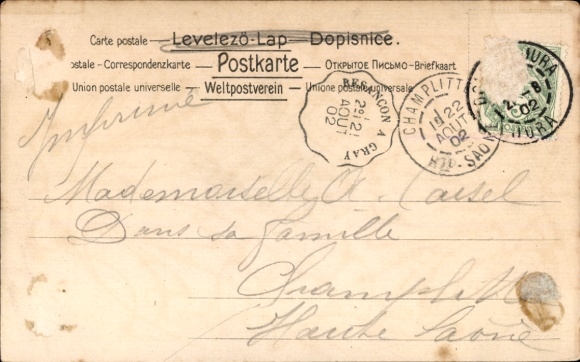 Carte postale — Levelező-Lap — Dopisnice.
ostale - Correspondenzkarte — Postkarte — Открытое Письмо - Briefkaart
Union postale universelle — Weltpostverein — Unione postale universale
BESANCON A GRAY
2º 21
AOUT
02
CHAMPLITTE
22
AOUT
02
HTE-SAONE
JURA
02
JURA
Imprimé
Mademoiselle A.
Dans sa famille
Champlitte
Haute Saône